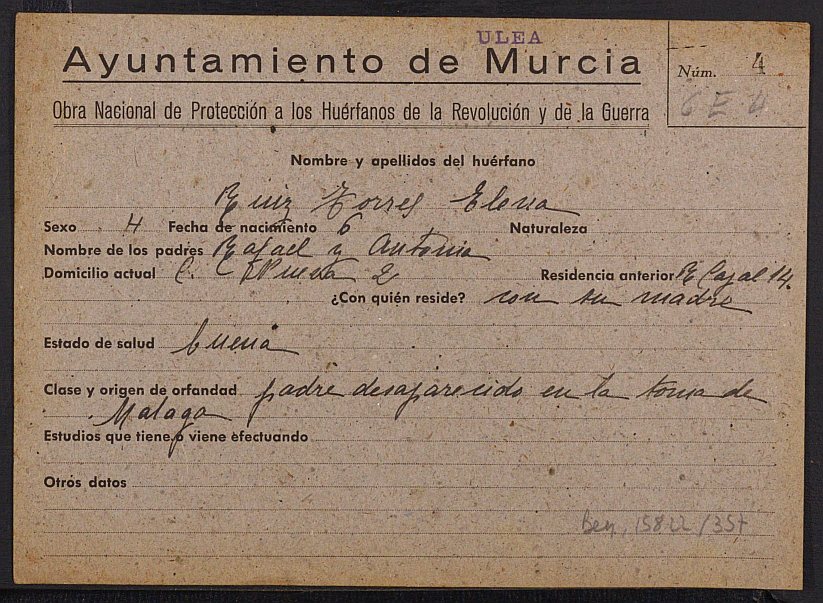 ULEA
Ayuntamiento de Murcia
Núm. 4
6 E 4
Obra Nacional de Protección a los Huérfanos de la Revolución y de la Guerra
Nombre y apellidos del huérfano
Ruiz Torres Elena
Sexo H Fecha de nacimiento 6 Naturaleza
Nombre de los padres Rafael y Antonia
Domicilio actual C. 2 Residencia anterior R Cajal 14.
¿Con quién reside? con su madre
Estado de salud buena
Clase y origen de orfandad padre desaparecido en la toma de
Malaga
Estudios que tiene o viene efectuando
Otros datos
Ben, 15822/357